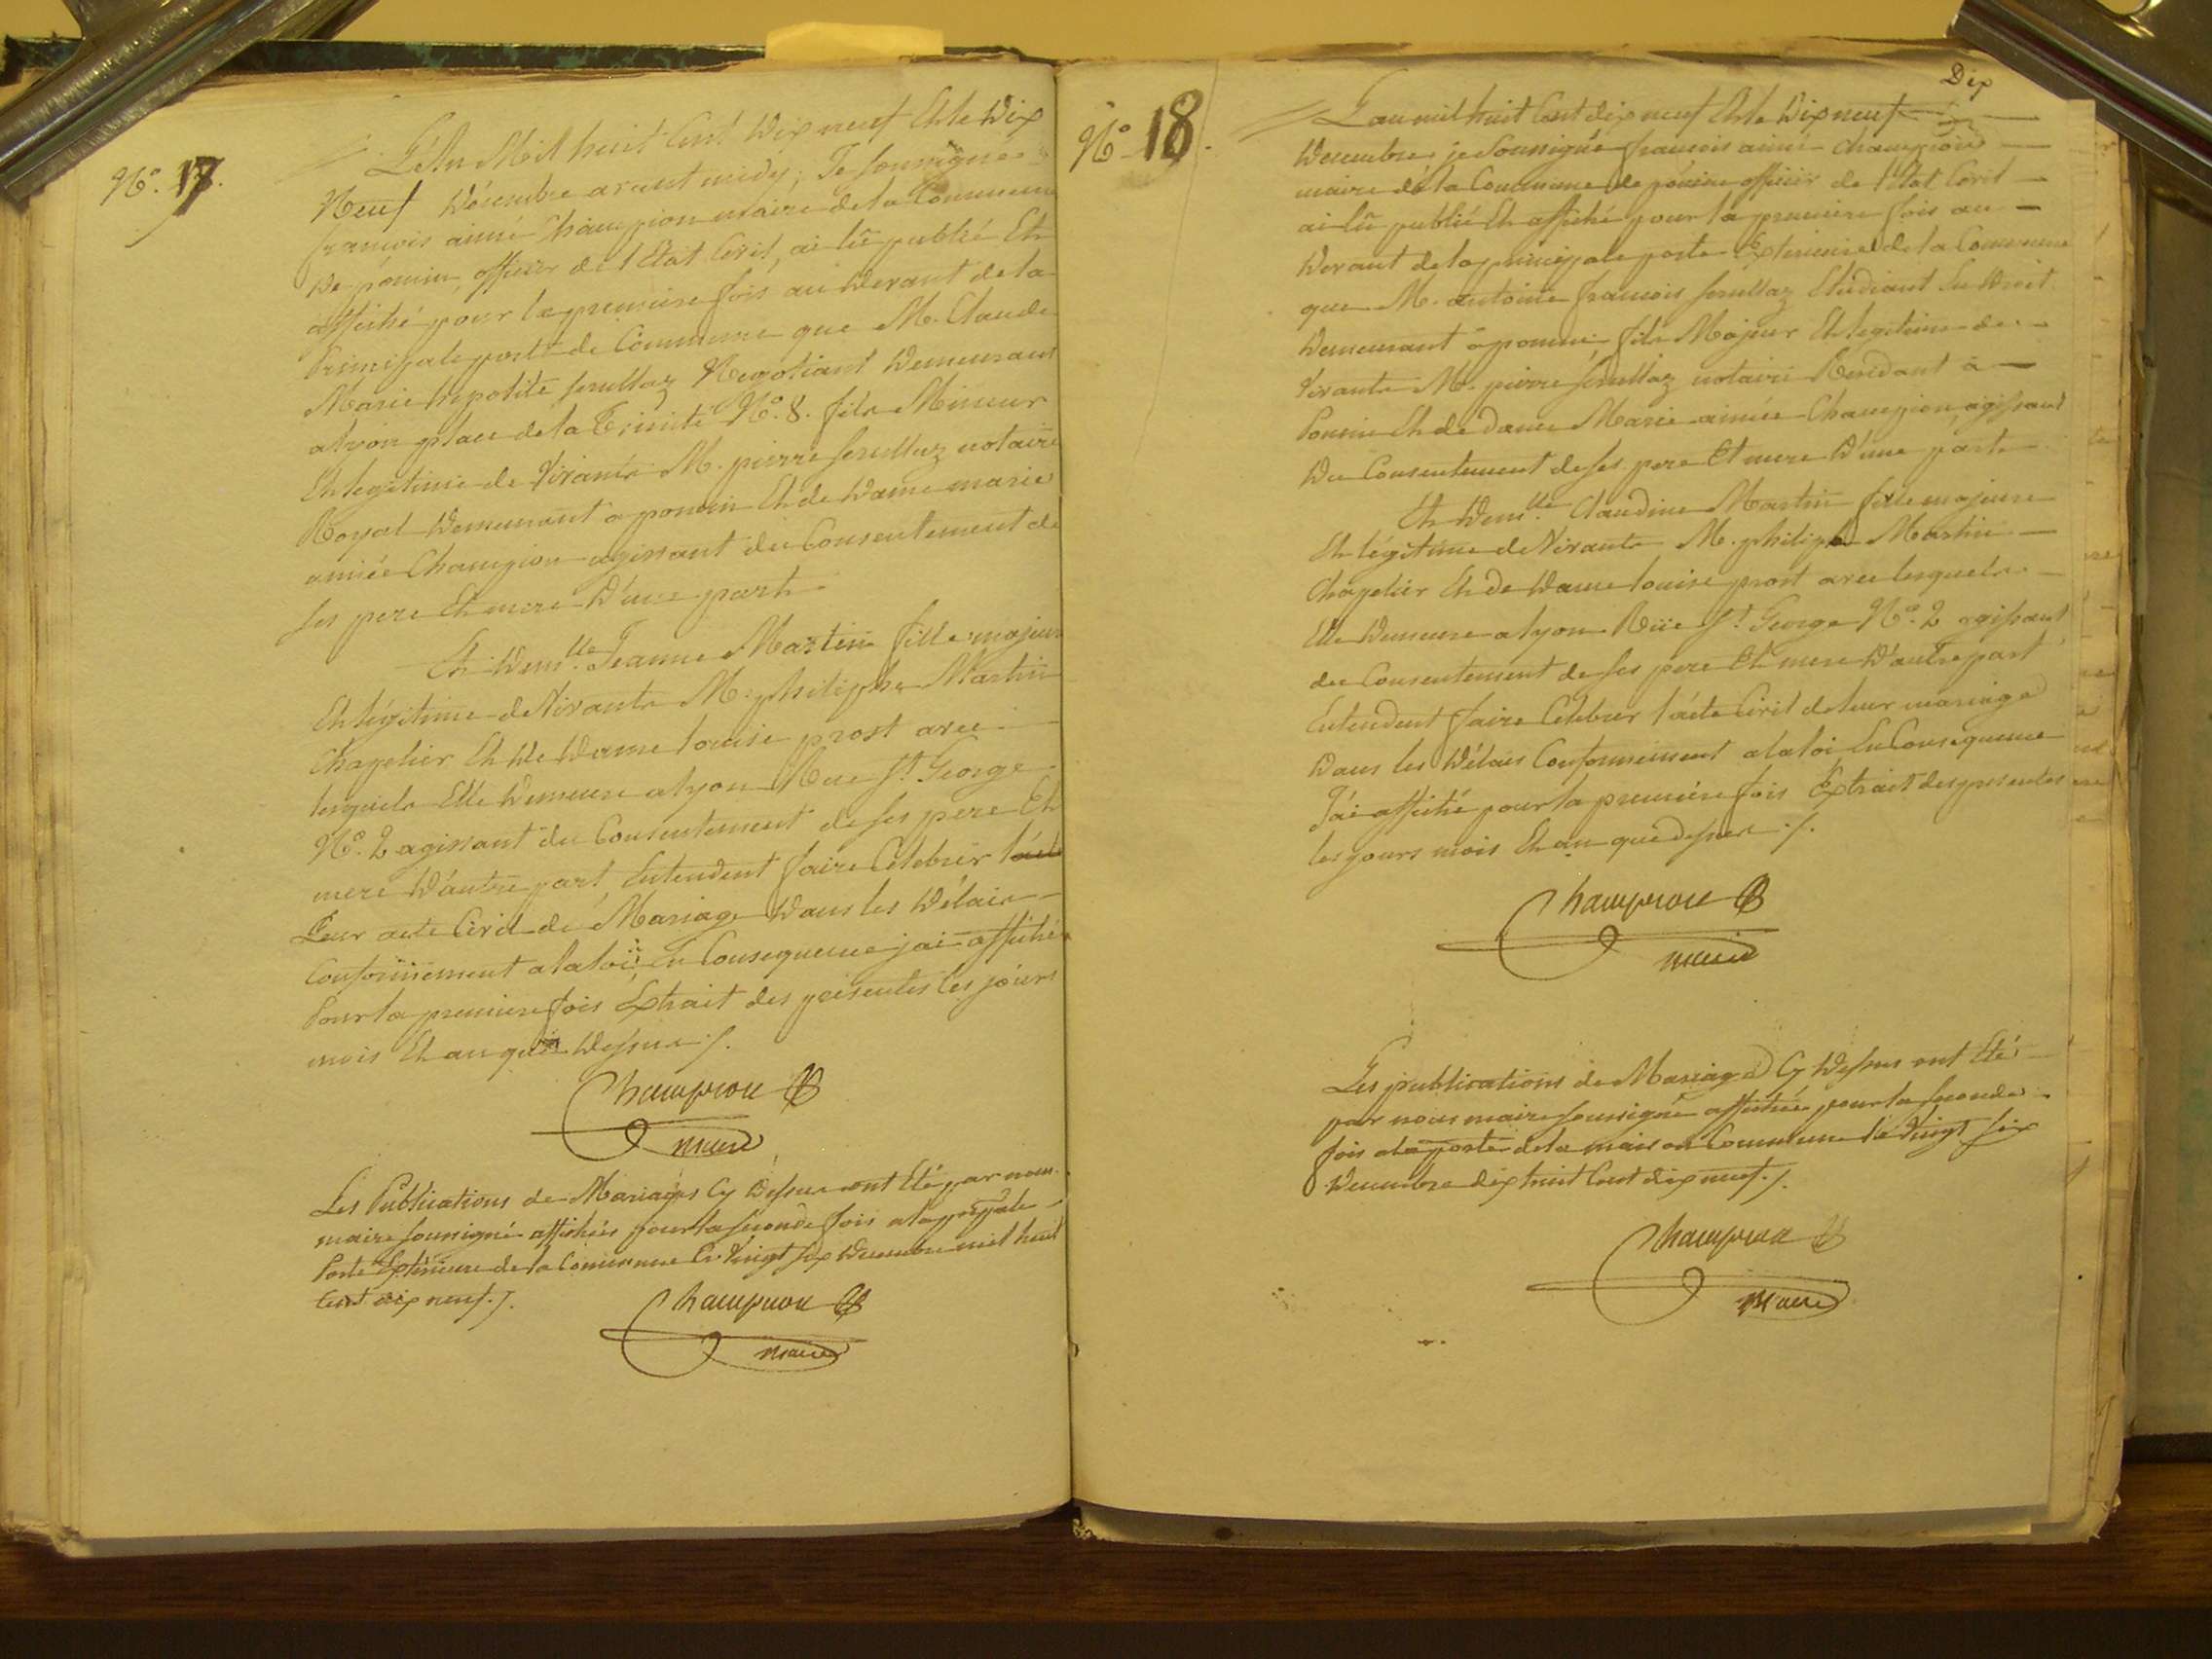 N.° 17.
L'An Mil huit Cent Dix neuf Et le Dix
Neuf Décembre avant midy, Je soussigné
françois aimé Champion maire de la Commune
De poncin, officier de l'Etat Civil, ai lû publié Et
affiché pour la premiere fois au Devant de la
Principale porte de Commune que M. Claude
Marie hypolite serullaz Negotiant Demeurant
a lyon place de la Trinité N.° 8. fils Mineur
Et legitime de Vivants M. pierre serullaz notaire
Royal Demeurant a poncin Et de Dame marie
aimée Champion agissant du Consentement de
ses pere Et mere D'une part
Et Dem.lle Jeanne Martin fille majeure
Et légitime de Vivants M. philiphe Martin
Chapelier Et De Dame louise prost avec
lesquels Elle Demeure a lyon Rue St. George
N.° 2 agissant du Consentement de ses pere Et
mere D'autre part, Entendent faire Celebrer l'acte
Leur acte Civil de Mariage Dans les Délais
Conformement a la loi; En Consequence jai affiché
Pour la premiere fois Extrait des presentes les jours
mois Et an que Dessus ./.
Champion
maire
Les Publications de Mariages Cy Dessus ont Eté par nous
maire soussigné affichées pour la seconde fois a la ppale
Porte Extérieure de la Commune Le Vingt six Decembre mil huit
Cent dix neuf ./.
Champion
maire
Dix
N.° 18.
L'an mil huit Cent dix neuf Et le Dix neuf
Decembre je soussigné françois aimé Champion
maire de la Commune de poncin officier de l'Etat Civil
ai lû publié Et affiché pour la premiere fois au
Devant de la principale porte Extérieure de la Commune
que M. antoine françois serullaz Etudiant En Droit
Demeurant a poncin fils Majeur Et legitime de
Vivants M. pierre serullaz notaire Residant à
Poncin Et de Dame Marie aimée Champion, agissant
Du Consentement de ses pere Et mere D'une part
Et Dem.lle Claudine Martin fille majeure
Et légitime de Vivants M. philiphe Martin
Chapelier Et de Dame louise prost avec lesquels
Elle Demeure a lyon Rue St. George N.° 2 agissant
du Consentement de ses pere Et mere D'autre part
Entendent faire Celebrer l'acte Civil de leur mariage
Dans les Délais Conformement a la loi En Consequence
J'ai affiché pour la premiere fois Extrait des presentes
les jours mois Et an que dessus ./.
Champion
maire
Les publications de Mariage Cy Dessus ont Eté
par nous maire soussigné affichées pour la seconde
fois a la porte de la maison Commune le Vingt six
Decembre dix huit Cent dix neuf ./.
Champion
maire